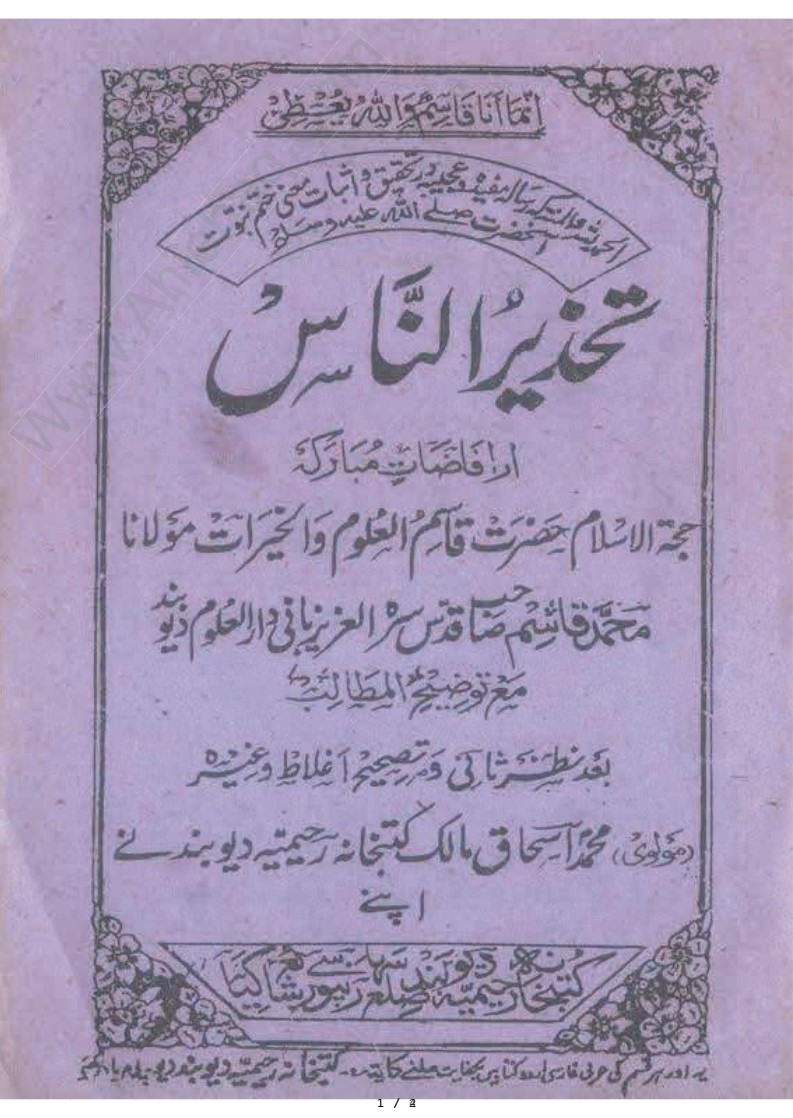 انما انا قاسم والله يعطى
الحمد لله والمنة کہ رسالہ مفیدہ وعجیبہ در تحقیق و اثبات معنی ختم نبوت
آنحضرت صلے اللہ علیہ وسلم
تحذیرُ النَّاسْ
از افاضاتِ مُبارکہ
حجۃ الاسلام حضرت قاسم العلوم والخیرات مولانا
محمد قاسم صاحب قدس سرہ العزیز بانی دارالعلوم دیوبند
مع توضیح المطالب
بعد نظر ثانی و تصحیح اغلاط وغیرہ
(مولوی) محمد اسحاق مالک کتبخانہ رحیمیہ دیوبند نے
اپنے
کتبخانہ رحیمیہ دیوبند ضلع سہارنپور سے شائع کیا
یہ اور ہر قسم کی عربی فارسی اردو کتابیں بکفایت ملنے کا پتہ:۔ کتبخانہ رحیمیہ دیوبند
Www.Ah
1 /